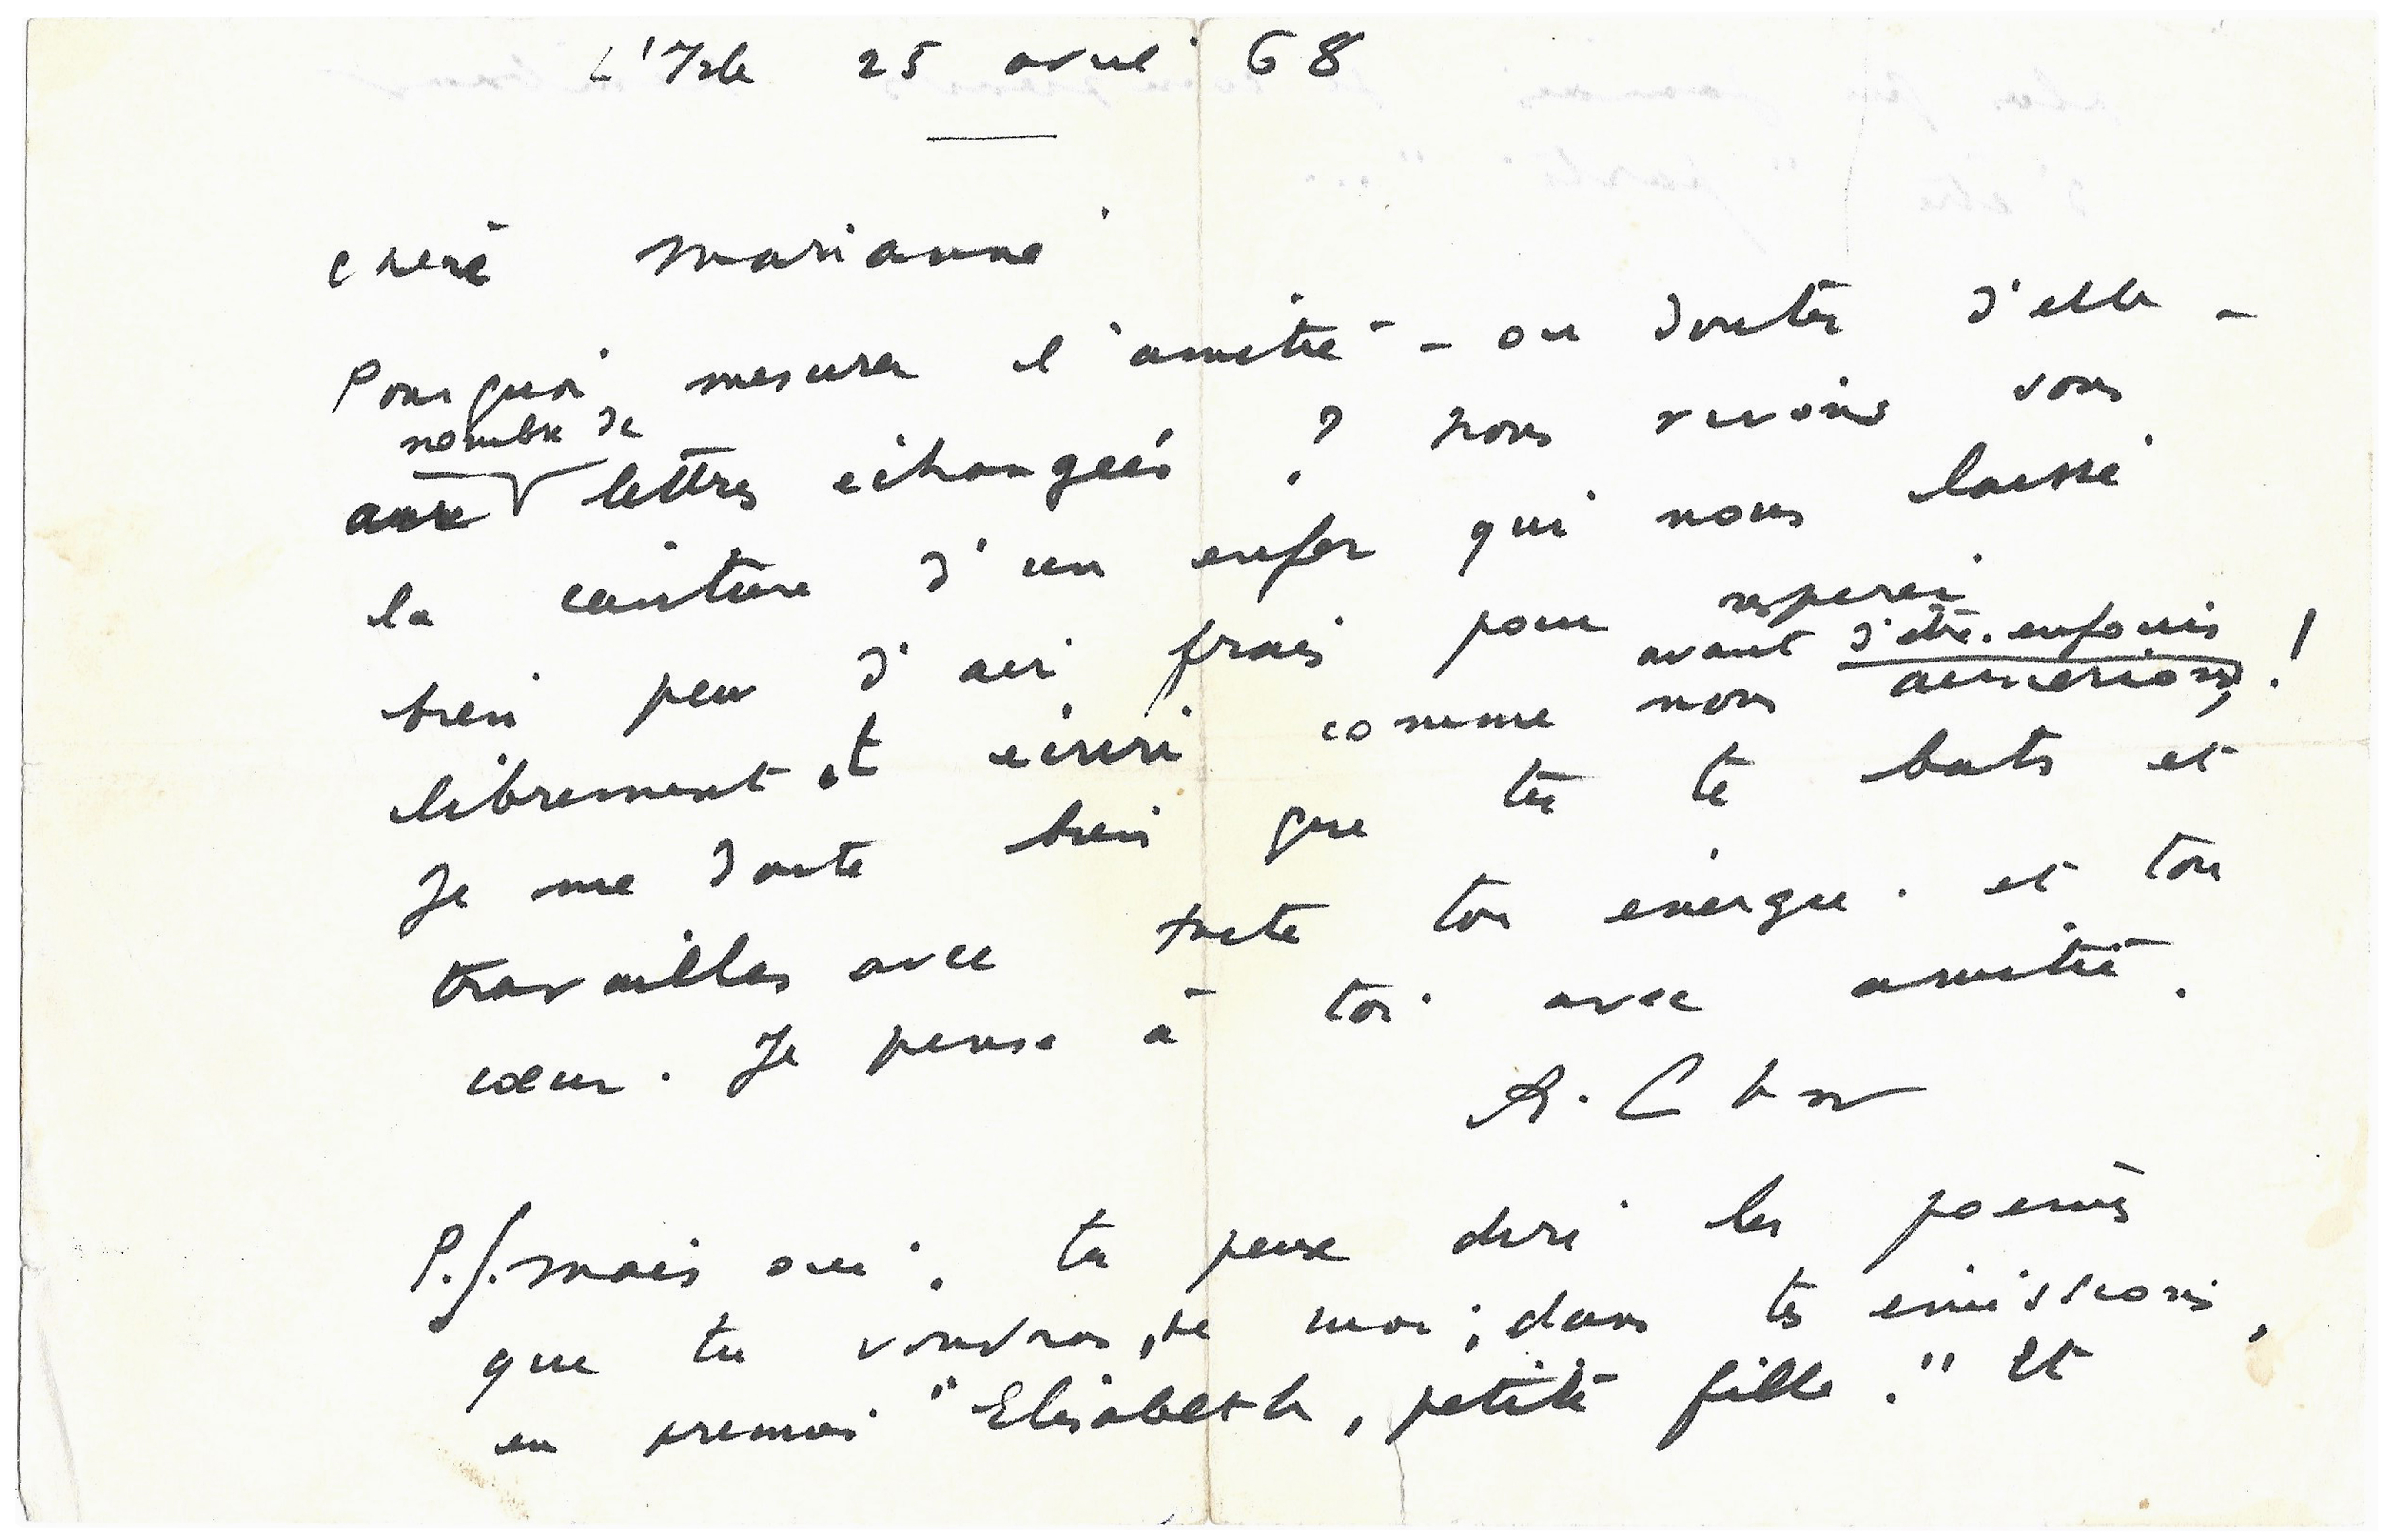 L'Isle 25 avril 68
Chère Marianne
Pourquoi mesurer l'amitié - ou douter d'elle -
nombre de
aux lettres échangées ? Nous vivons sous
la ceinture d'un enfer qui nous laisse
bien peu d'air frais pour respirer
avant d'être enfouis
librement, et écrire comme nous aimerions !
Je me doute bien que tu te bats et
travailles avec toute ton énergie. et ton
cœur. Je pense à toi avec amitié.
R. Char
P.S. Mais oui, tu peux dire les poèmes
que tu voudras, de moi, dans tes émissions,
en premier "Elisabeth, petite fille." Et